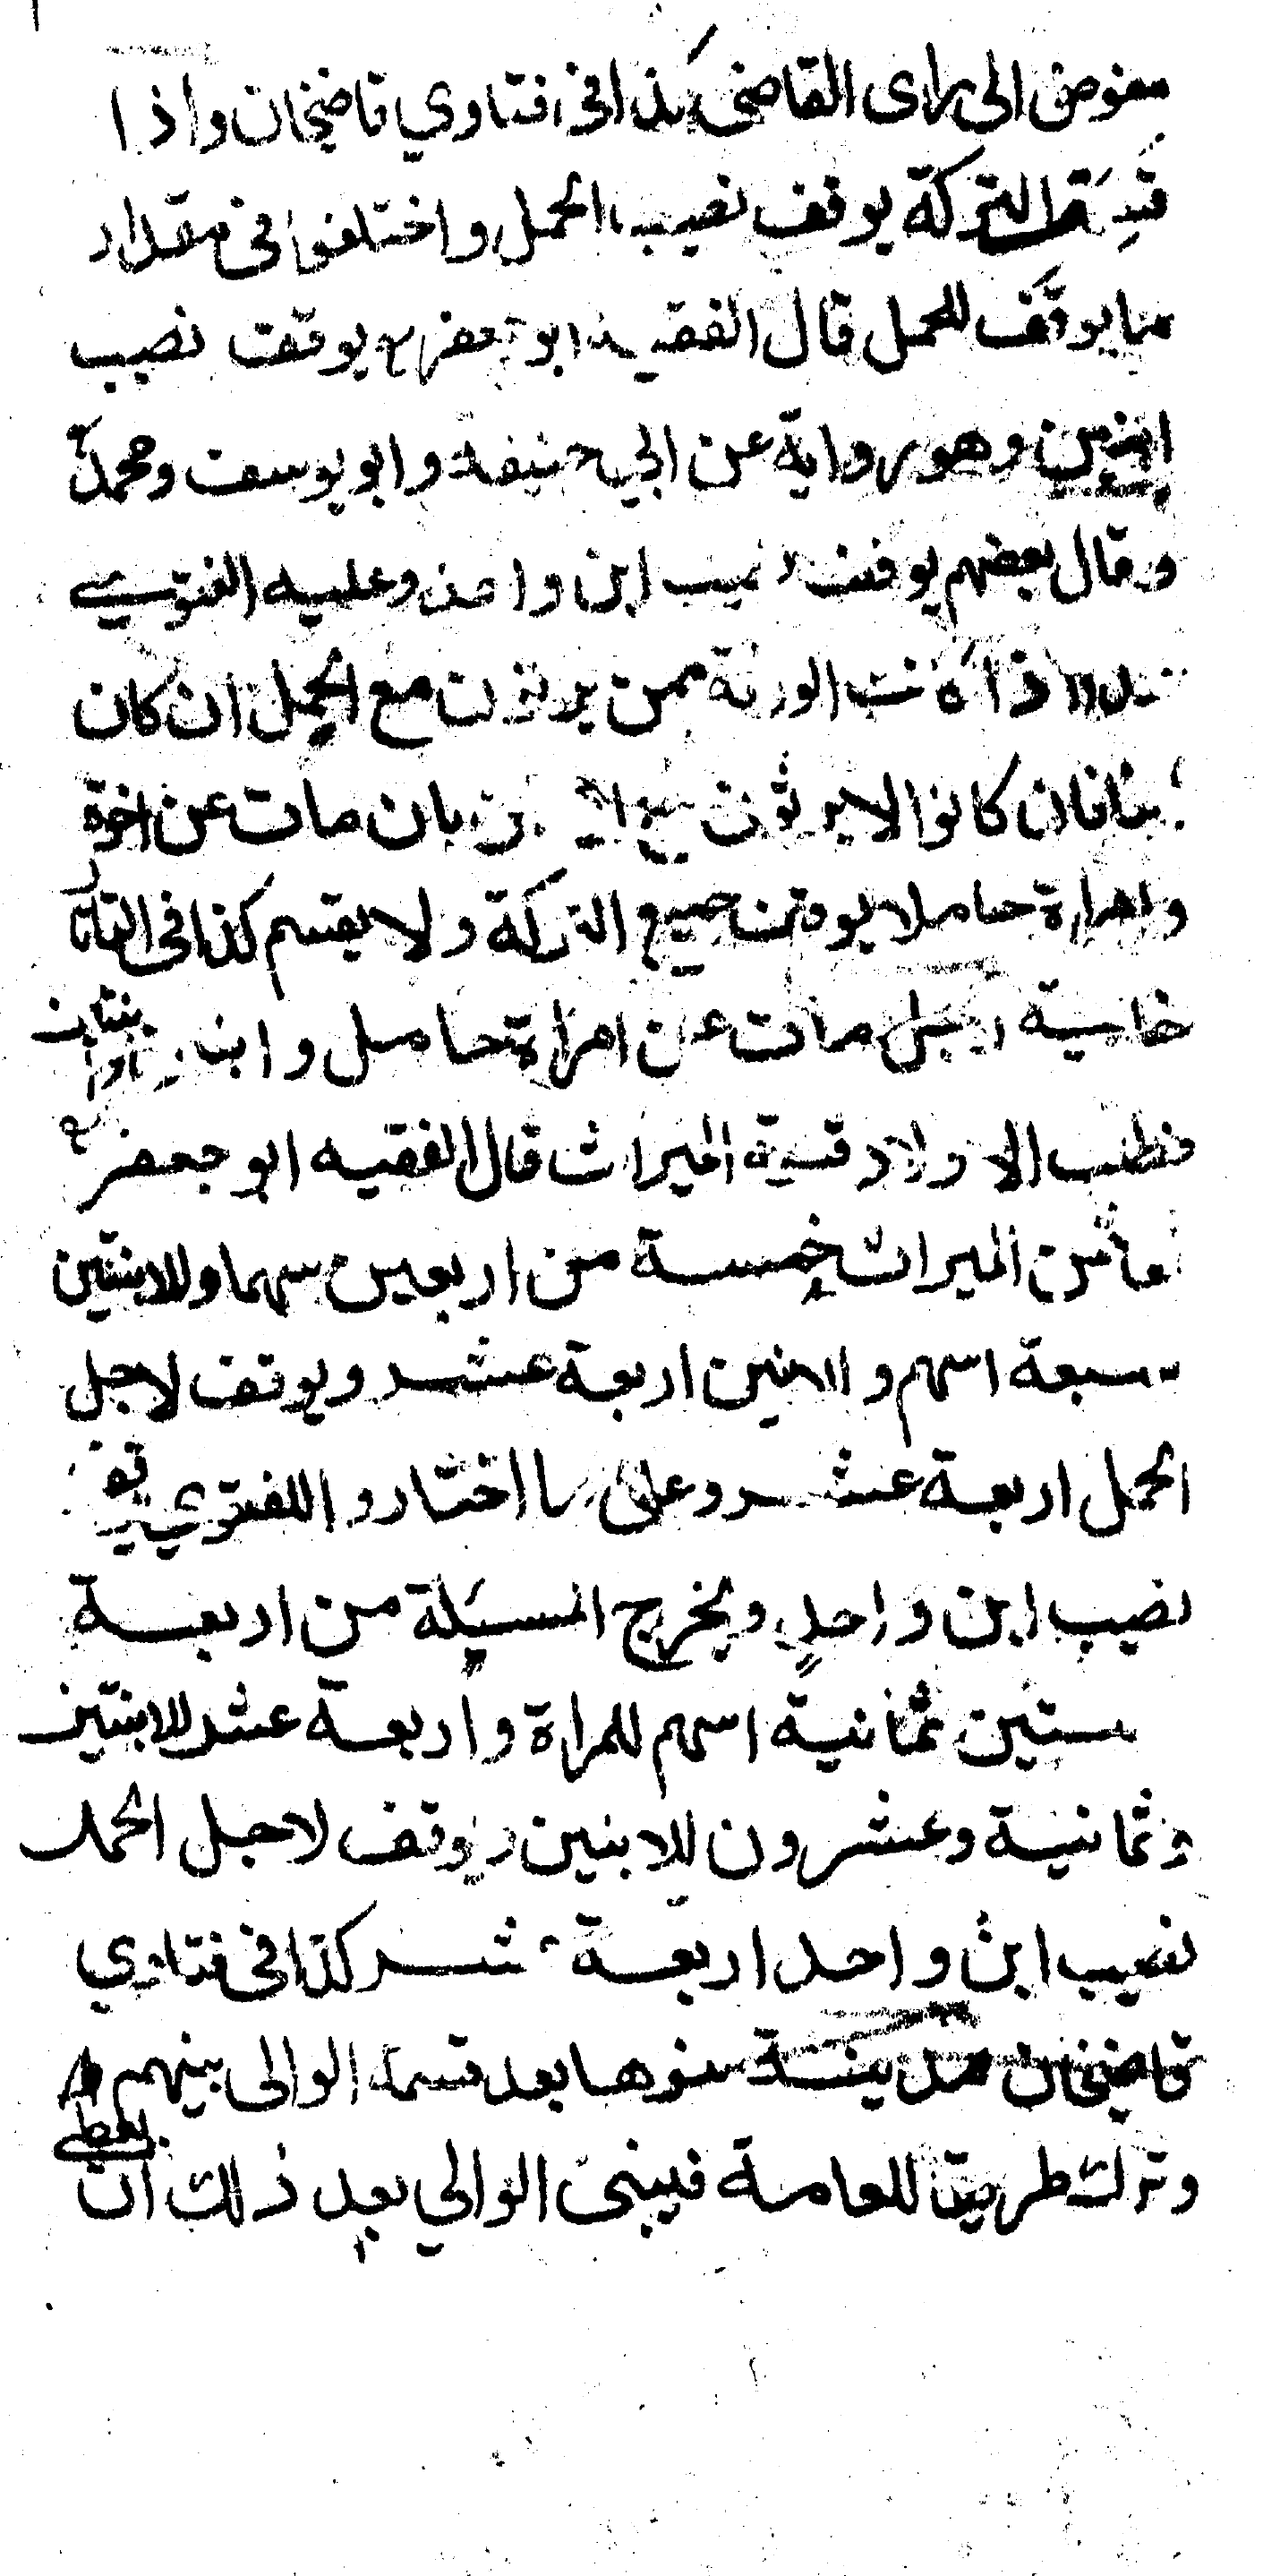 مفوض الى راى القاضى كذا فى فتاوي قاضيخان واذا
قسمة التركة يوقف نصيب الحمل واختلفوا فى مقدار
ما يوقف للحمل قال الفقيه ابو جعفر يوقف نصيب
ابنين وهو رواية عن ابي حنيفة وابو يوسف ومحمد
وقال بعضهم يوقف نصيب ابن واحد وعليه الفتوى
اذا كانت الورثة ممن يرثون مع الحمل ان كان
ابنا فان كانوا لا يرثون مع بان مات عن اخوة
وامراة حاملا يوقف جميع التركة ولا يقسم كذا فى التاتار
خانية رجل مات عن امراة حامل وابنان وابنتان
فطلب الاولاد قسمة الميراث قال الفقيه ابو جعفر
ثمن الميراث خمسة من اربعين سهما وللابنتين
سبعة اسهم والابنين اربعة عشر ويوقف لاجل
الحمل اربعة عشر وعلى ما اختاروا للفتوى يوقف
نصيب ابن واحد ويخرج المسئلة من اربعة
ستين ثمانية اسهم للمراة واربعة عشر للابنتين
وثمانية وعشرون للابنين ويوقف لاجل الحمل
نصيب ابن واحد اربعة عشر كذا فى فتاوي
قاضيخان مدينة بنوها بعد قسمة الوالى بينهم
وترك طريقا للعامة فيبنى الوالي بعد ذلك ان يعطى